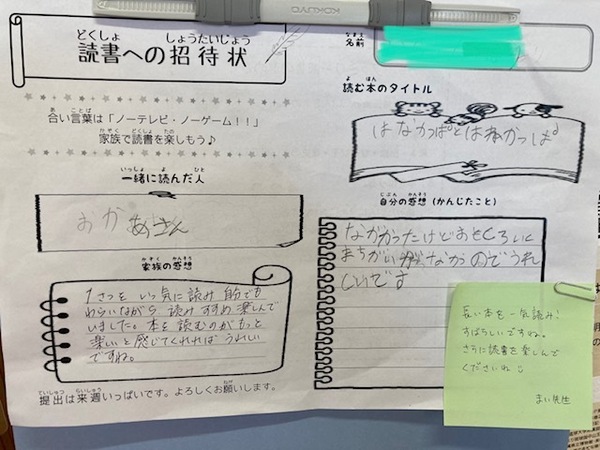 KOKUYO
どくしょ しょうたいじょう
読書への招待状
なまえ
名前
ことば
合い言葉は「ノーテレビ・ノーゲーム！！」
かぞく どくしょ たの
家族で読書を楽しもう♪
よ ほん
読む本のタイトル
はなかっぱとはねかっぱ
いっしょ よ ひと
一緒に読んだ人
おかあさん
じぶん かんそう
自分の感想（かんじたこと）
ながかったけどおもしろいく
まちがい なかのでうれ
しいです
かぞく かんそう
家族の感想
1さつを いっ気に読み 自分でも
わらいながら 読みすすめ 楽しんで
いました。本を読むのがもっと
楽しいと感じてくれればうれしい
ですね。
ていしゅつ らいしゅう ねが
提出は来週いっぱいです。よろしくお願いします。
長い本を一気読み！
すばらしいですね。
さらに読書を楽しんで
くださいね
まい先生